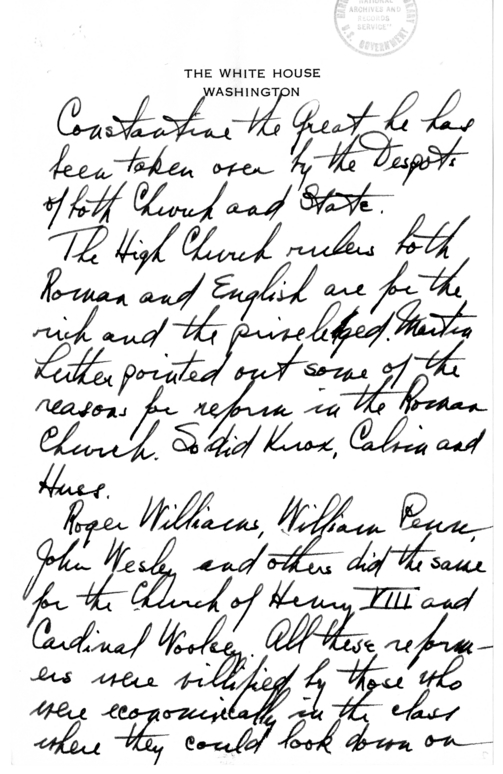 NATIONAL
ARCHIVES AND
RECORDS
SERVICE
U.S. GOVERNMENT
THE WHITE HOUSE
WASHINGTON
Constantine the Great he has
been taken over by the Despots
of both Church and State.
The High Church rulers both
Roman and English are for the
rich and the priveledged. Martin
Luther pointed out some of the
reasons for reform in the Roman
Church. So did Knox, Calvin and
Huss.
Roger Williams, William Penn,
John Wesley and others did the same
for the Church of Henry VIII and
Cardinal Woolsey. All these reform-
ers were villified by those who
were economically in the class
where they could look down on